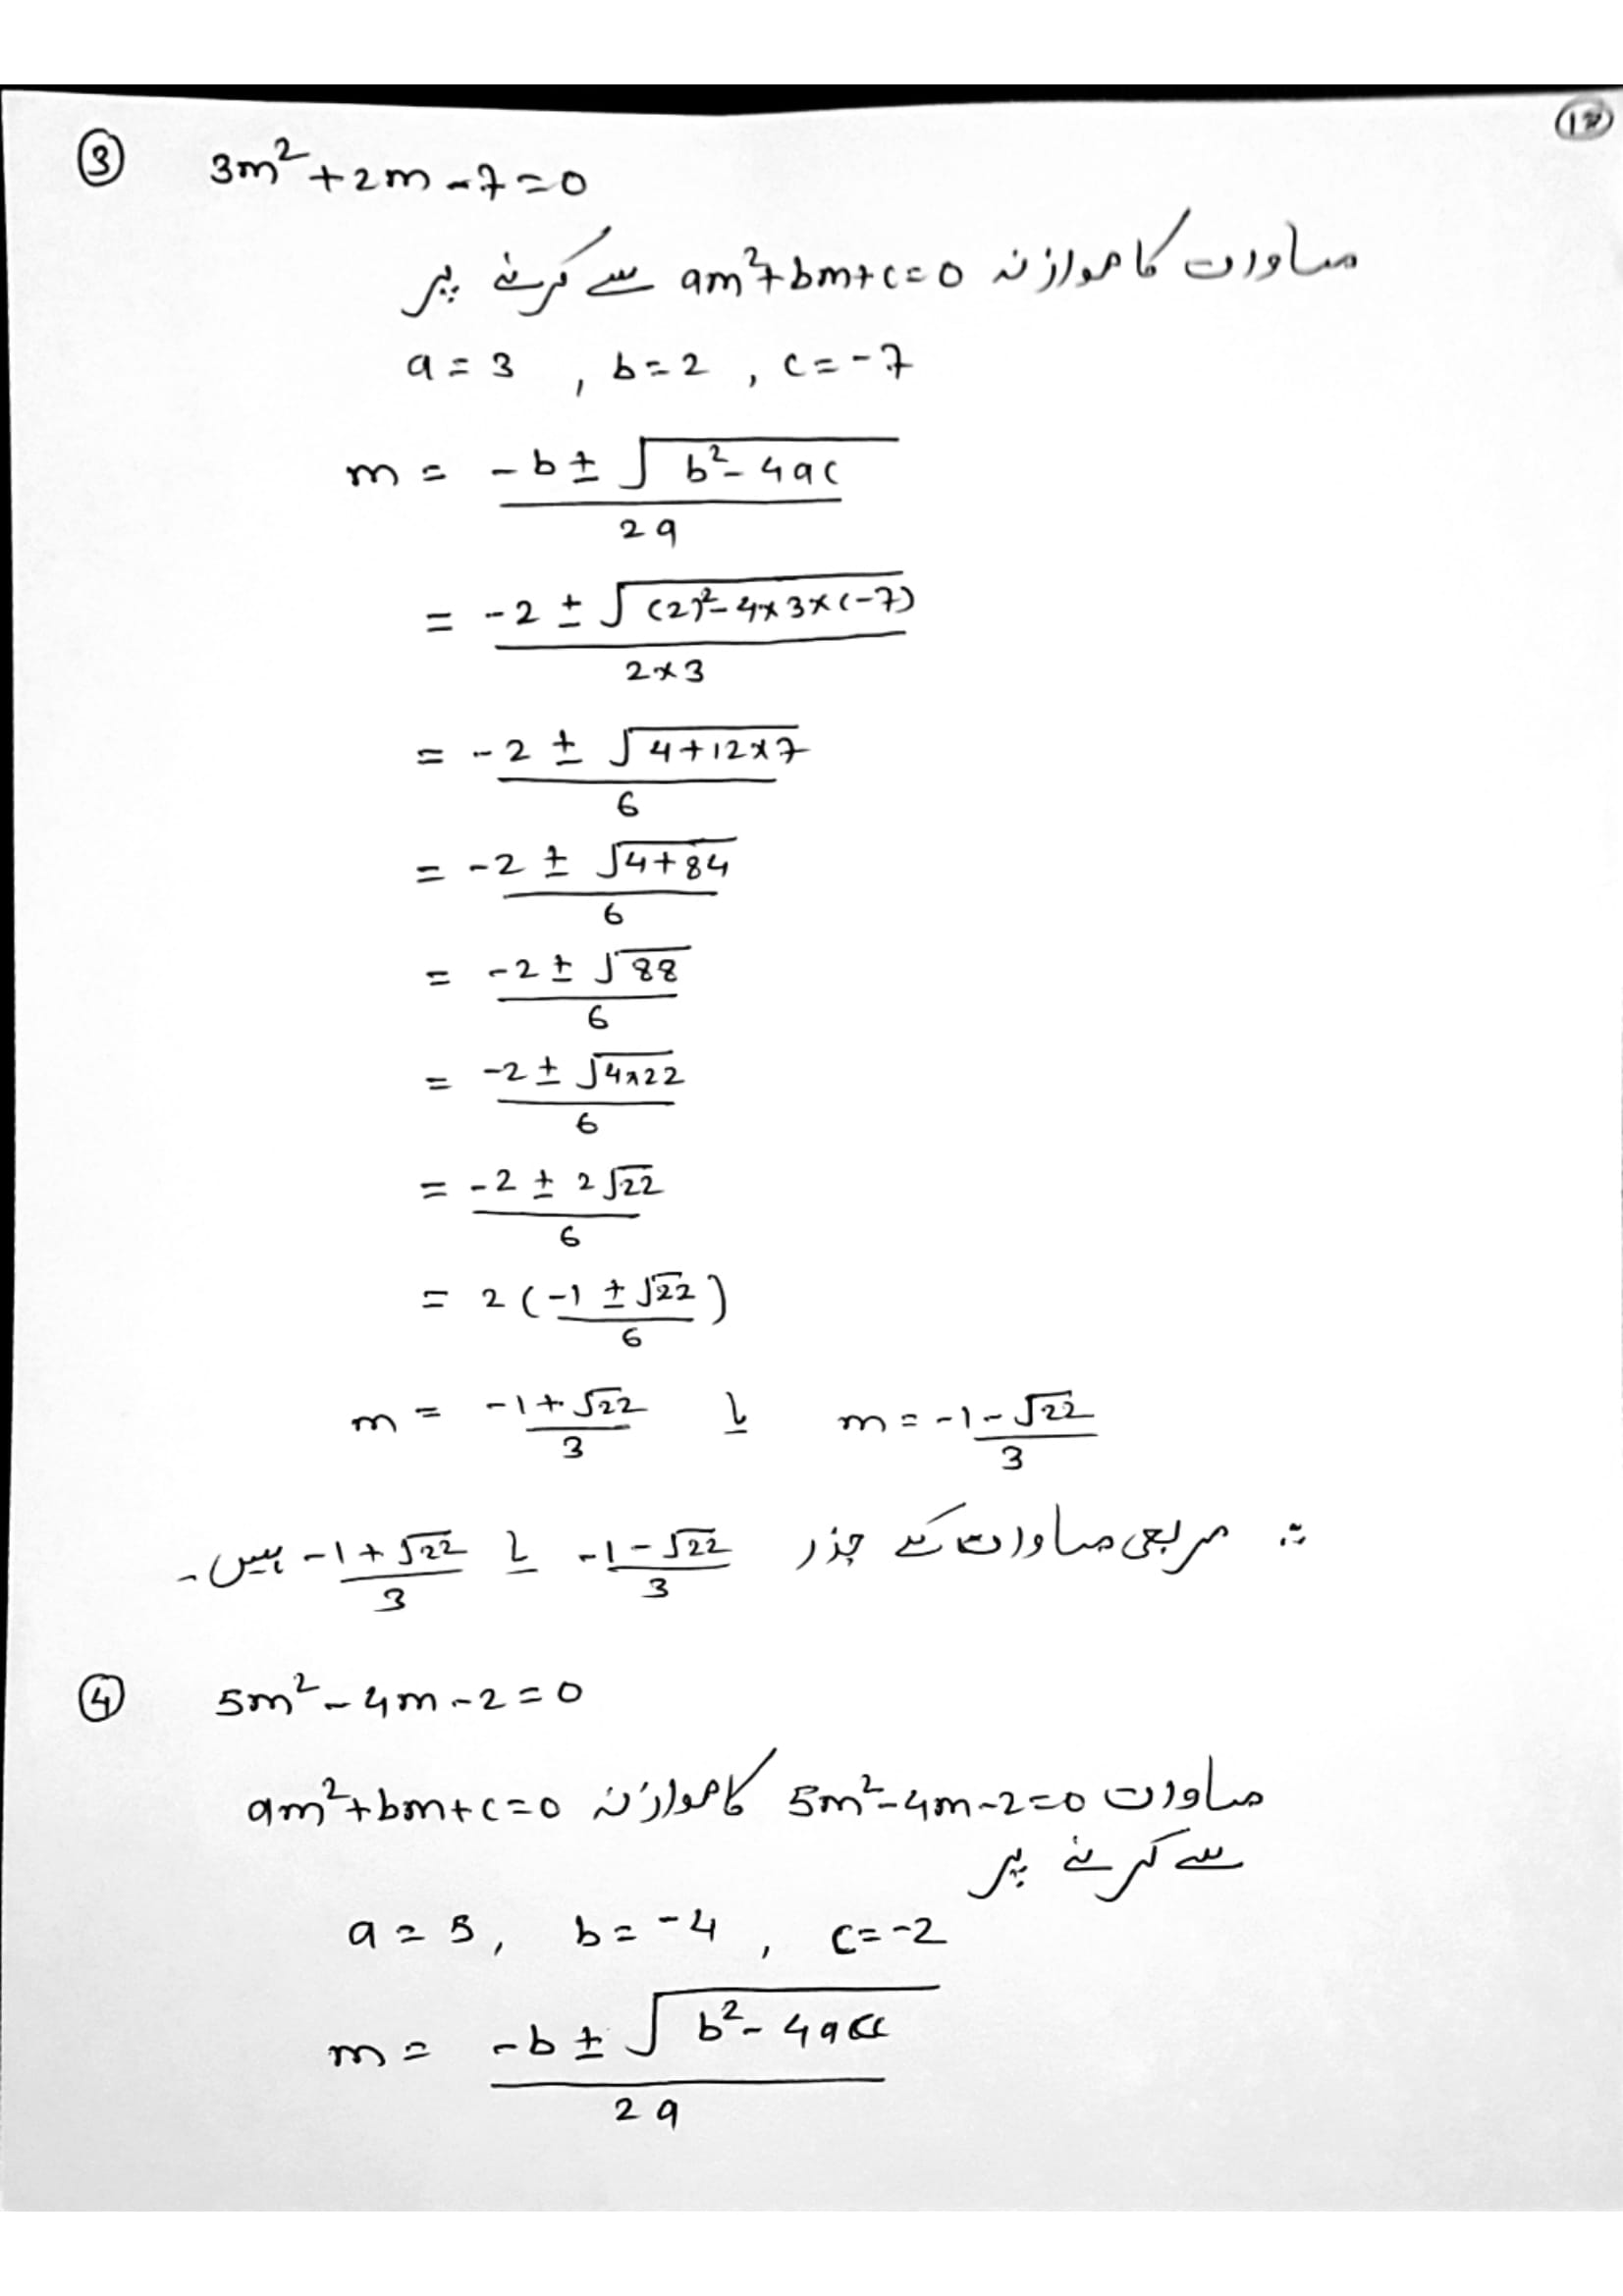 ③ 3m² + 2m - 7 = 0
مساوات کا موازنہ am² + bm + c = 0 سے کرنے پر
a = 3 , b = 2 , c = -7
m = (-b ± √(b² - 4ac)) / 2a
= (-2 ± √((2)² - 4 × 3 × (-7))) / 2×3
= (-2 ± √(4 + 12×7)) / 6
= (-2 ± √(4 + 84)) / 6
= (-2 ± √88) / 6
= (-2 ± √(4×22)) / 6
= (-2 ± 2√22) / 6
= 2(-1 ± √22) / 6
m = (-1 + √22) / 3 یا m = (-1 - √22) / 3
∴ مربعی مساوات کے جذر (-1 - √22) / 3 یا (-1 + √22) / 3 ہیں۔
④ 5m² - 4m - 2 = 0
مساوات 5m² - 4m - 2 = 0 کا موازنہ am² + bm + c = 0
سے کرنے پر
a = 5 , b = -4 , c = -2
m = (-b ± √(b² - 4ac)) / 2a